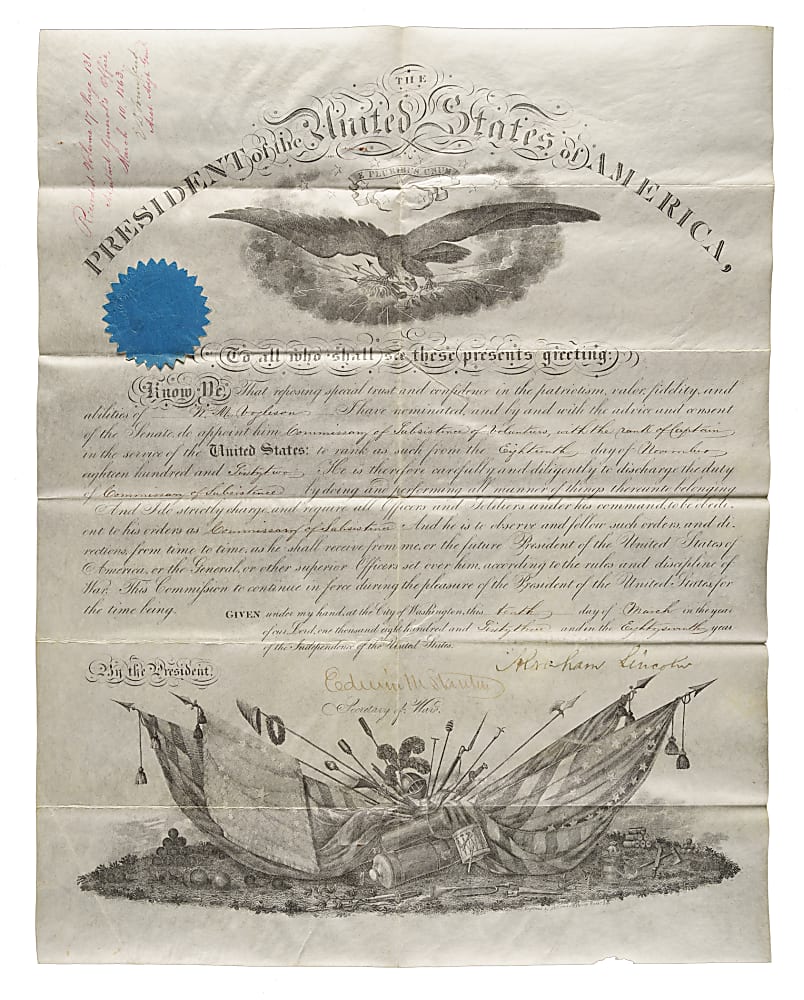 Received Volume 17 Page 131
Adjutant General's Office
March 10, 1863.
Asst. Adjt. Genl.
THE
PRESIDENT of the United States of AMERICA,
E PLURIBUS UNUM
To all who shall see these presents greeting:
Know Ye, That reposing special trust and confidence in the patriotism, valor, fidelity, and
abilities of W. M. I have nominated, and by and with the advice and consent
of the Senate, do appoint him Commissary of Subsistence of Volunteers, with the rank of Captain
in the service of the United States: to rank as such from the Eighteenth day of November
eighteen hundred and Sixty two. He is therefore carefully and diligently to discharge the duty
of Commissary of Subsistence by doing and performing all manner of things thereunto belonging
And I do strictly charge, and require all Officers and Soldiers under his command, to be obedi-
ent to his orders as Commissary of Subsistence And he is to observe and follow such orders, and di-
rections, from time to time, as he shall receive from me, or the future President of the United States of
America, or the General, or other superior Officers set over him, according to the rules and discipline of
War. This Commission to continue in force during the pleasure of the President of the United States, for
the time being.
GIVEN under my hand, at the City of Washington, this tenth day of March in the year
of our Lord, one thousand eight hundred and Sixty three and in the Eighty seventh year
of the Independence of the United States.
By the President,
Abraham Lincoln
Edwin M Stanton
Secretary of War.